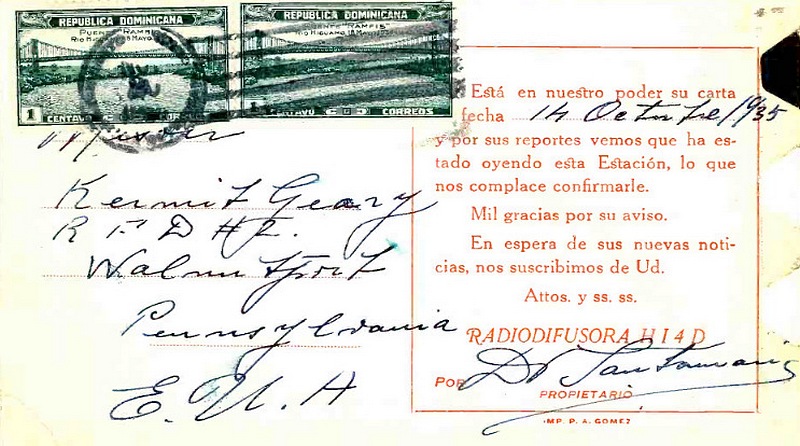 REPUBLICA DOMINICANA
PUENTE "RAMFIS"
RIO HIGUAMO 18 MAYO
1 CENTAVO CORREOS
REPUBLICA DOMINICANA
PUENTE "RAMFIS"
RIO HIGUAMO 18 MAYO
CENTAVO CORREOS
Kermit Geary
R F D #2.
Walnutport
Pennsylvania
E.U.A
Está en nuestro poder su carta
fecha 14 Octubre/935
y por sus reportes vemos que ha es-
tado oyendo esta Estación, lo que
nos complace confirmarle.
Mil gracias por su aviso.
En espera de sus nuevas noti-
cias, nos suscribimos de Ud.
Attos. y ss. ss.
RADIODIFUSORA HI4D
POR Dr Santamaria
PROPIETARIO
IMP. P. A. GOMEZ